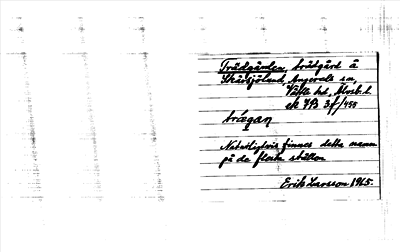 Trädgården, trädgård å
Skärsjölund, Angereds sn,
Vättle hd, Älvsb. l.
ek 7B 3f/455
trǻgan
Naturligtvis finnes detta namn
på de flesta ställen
Erik Larsson 1965.